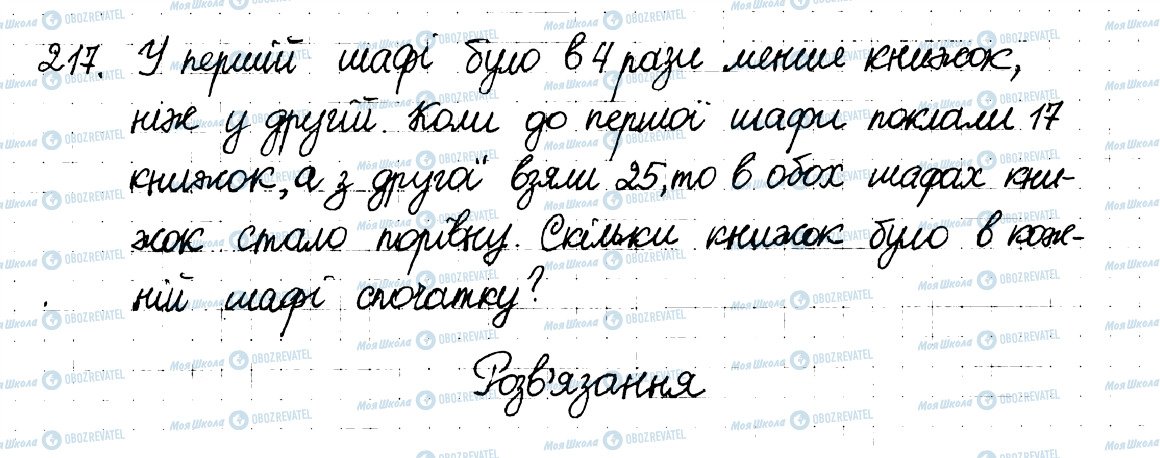 217. У першій шафі було в 4 рази менше книжок,
ніж у другій. Коли до першої шафи поклали 17
книжок, а з другої взяли 25, то в обох шафах кни-
жок стало порівну. Скільки книжок було в кож-
ній шафі спочатку?
Розв'язання